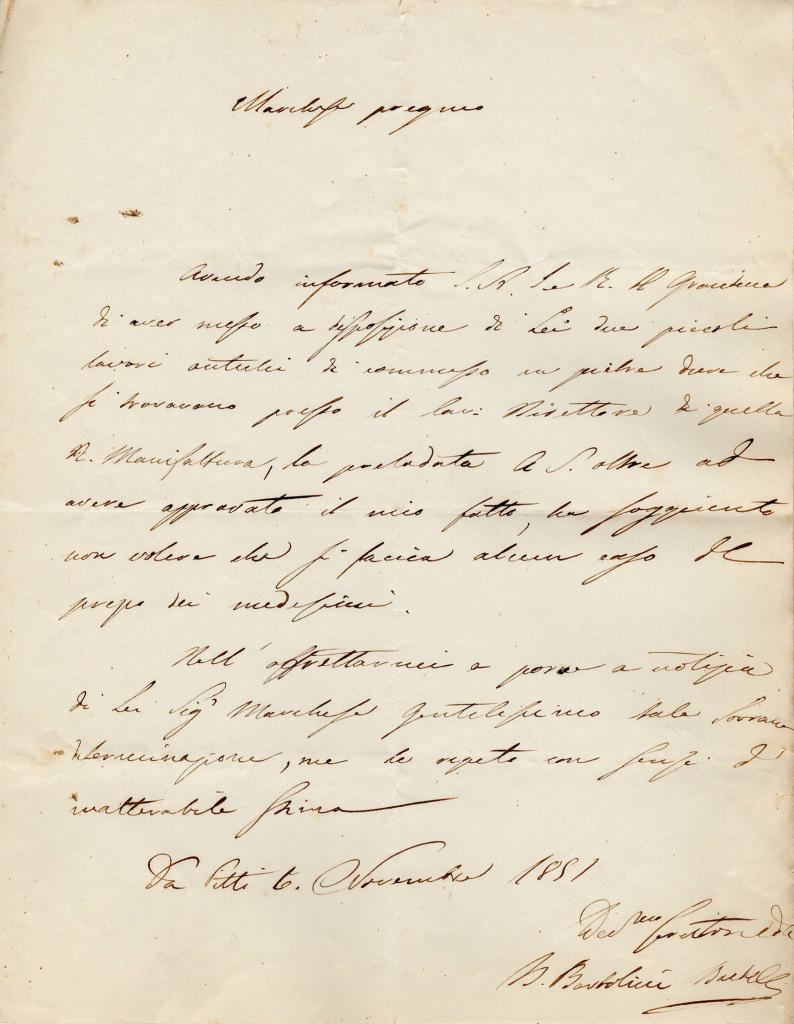 Marchese pregmo
Avendo informato S. A. I. e R. Il Granduca
di aver messo a disposizione di Lei due piccoli
lavori antichi di commesso in pietre dure che
si trovavano presso il Cav: Direttore di quella
R. Manifattura, la prelodata A S. oltre ad
avere approvato il mio fatto, ha soggiunto
non volere che si faccia alcun caso del
prezzo dei medesimi.
Nell' affrettarmi a porre a notizia
di Lei Sigr Marchese gentilissimo tale Sovrana
determinazione, me le ripeto con sensi d'
inalterabile stima
Da Pitti 6. Novembre 1851
Devmo Servitore
Bartolini